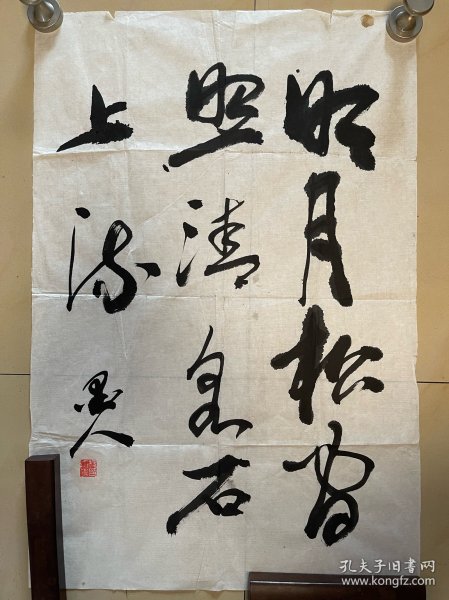 明月松间
照清泉石
上流
墨人
孔夫子旧书网
www.kongfz.com